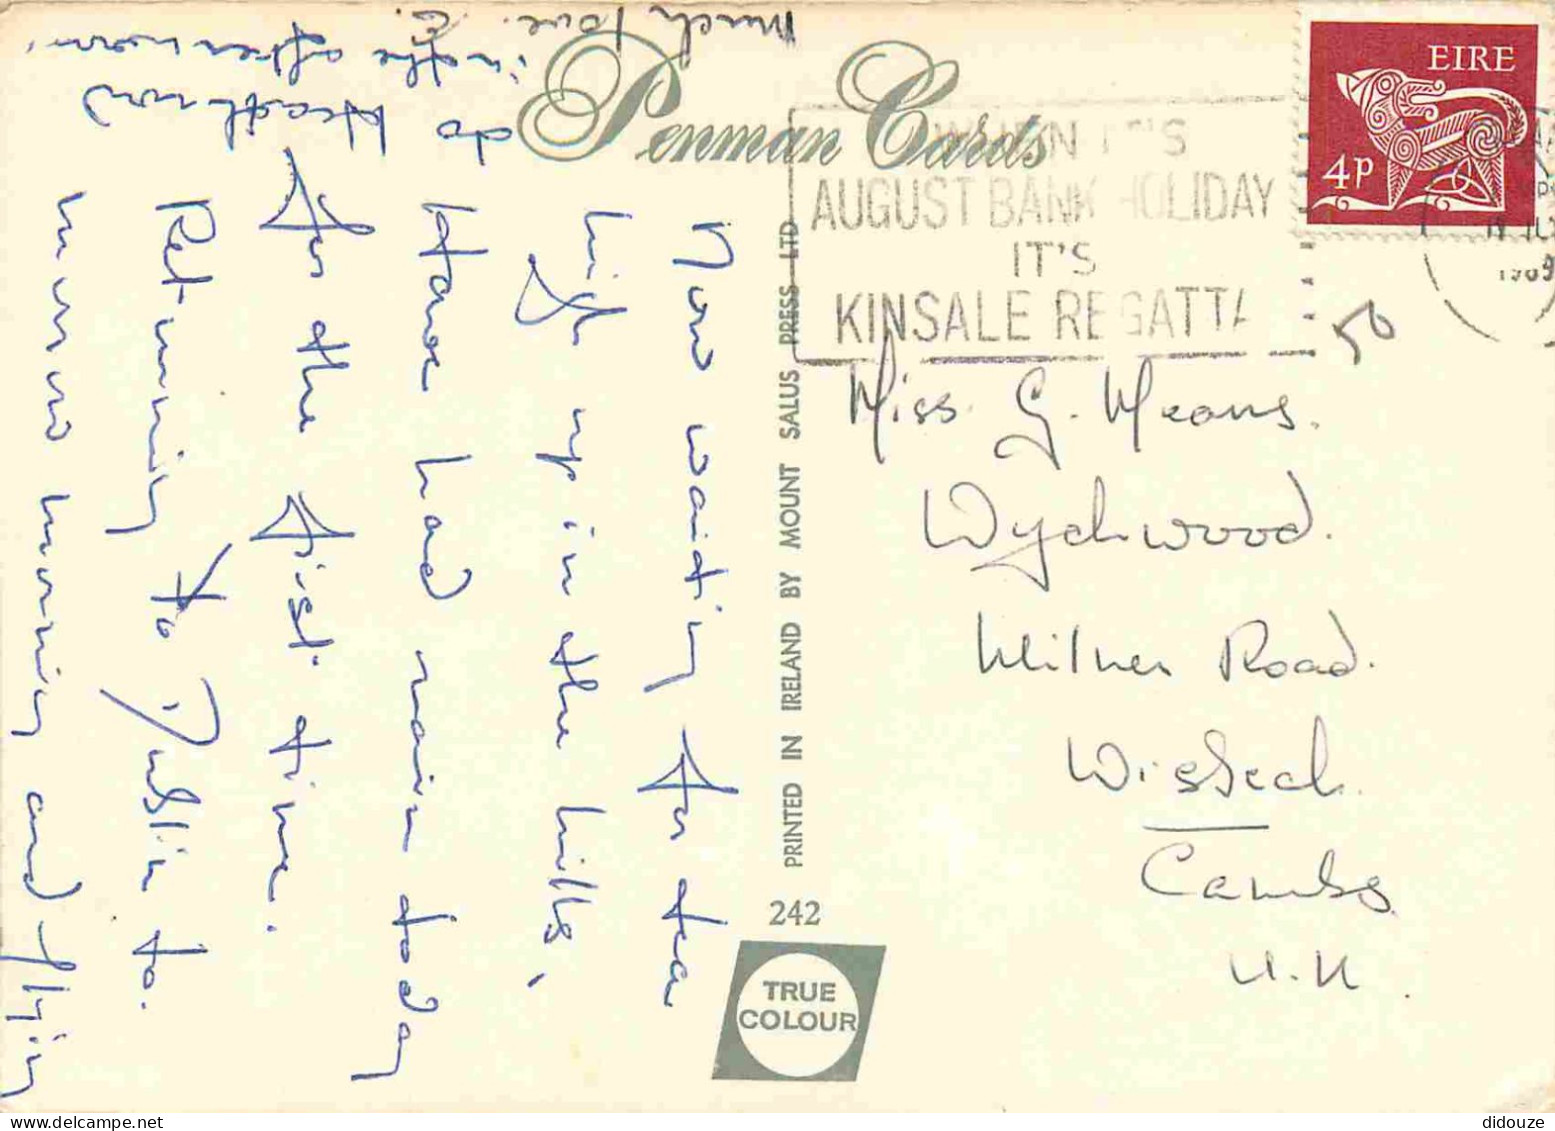 Penman Cards
WHEN IT'S
AUGUST BANK HOLIDAY
IT'S
KINSALE REGATTA
EIRE
4p
1969
50
Now waiting for tea
high up in the hills,
Have had rain today
for the first time.
Returning to Dublin to.
morrow morning and flying
to Heathrow
in the afternoon.
Much love. G.
Miss. G. Means.
Wychwood.
Milner Road.
Wisbech.
Cambs.
U.K.
PRINTED IN IRELAND BY MOUNT SALUS PRESS LTD
242
TRUE
COLOUR
didouze